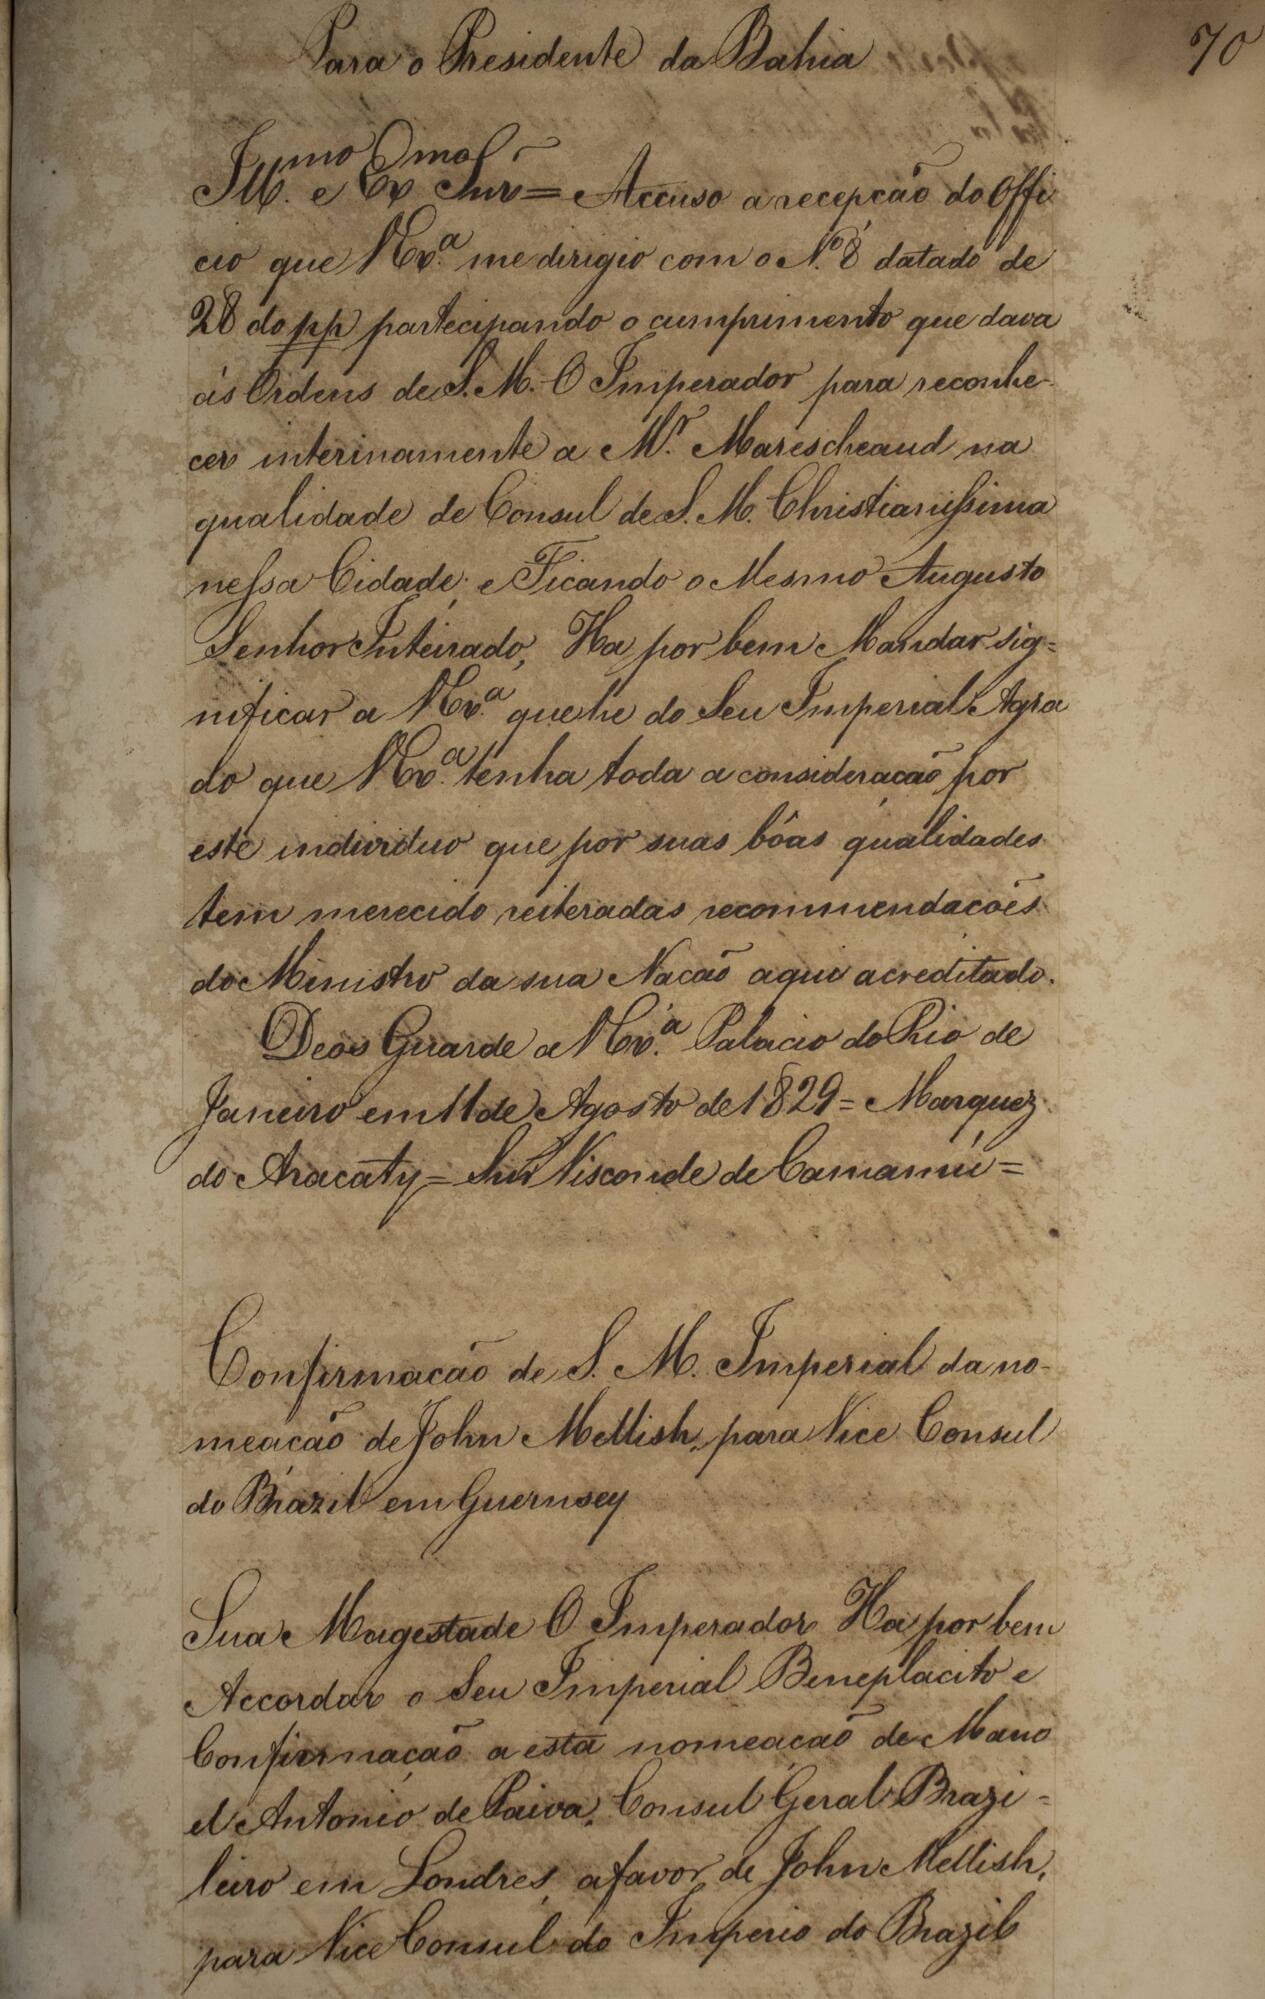 70
Para o Presidente da Bahia
Ill.mo e Ex.mo Snr = Accuso a recepção do Offi
cio que V Ex.a me dirigio com o N.o 8 datado de
28 do pp partecipando o cumprimento que dava
ás Ordens de S. M. O Imperador para reconhe-
cer interinamente a Mr. Marescheaud na
qualidade de Consul de S. M. Christianissima
nessa Cidade; e Ficando o Mesmo Augusto
Senhor Inteirado, Ha por bem Mandar sig=
nificar a V Ex.a que he do Seu Imperial Agra
do que V Ex.a tenha toda a consideração por
este individuo que por suas bôas qualidades
tem merecido reiteradas recommendacões
do Ministro da sua Nacão aqui acreditado.
Deos Guarde a V Ex.a Palacio do Rio de
Janeiro em 11 de Agosto de 1829 = Marquez
do Aracaty = Snr Visconde de Camamú =
Confirmacão de S. M. Imperial da no-
meacão de John Mellish, para Vice Consul
do Brazil em Guernsey
Sua Magestade O Imperador Ha por bem
Accordar o Seu Imperial Beneplacito e
Confirmação a esta nomeação de Mano
el Antonio de Paiva, Consul Geral Brazi=
leiro em Londres, a favor de John Mellish,
para Vice Consul do Imperio do Brazil